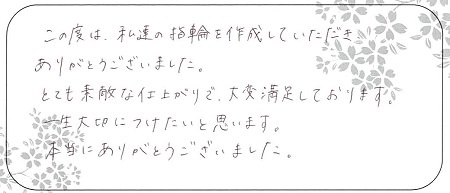 この度は、私達の指輪を作成していただき
ありがとうございました。
とても素敵な仕上がりで、大変満足しております。
一生大切につけたいと思います。
本当にありがとうございました。